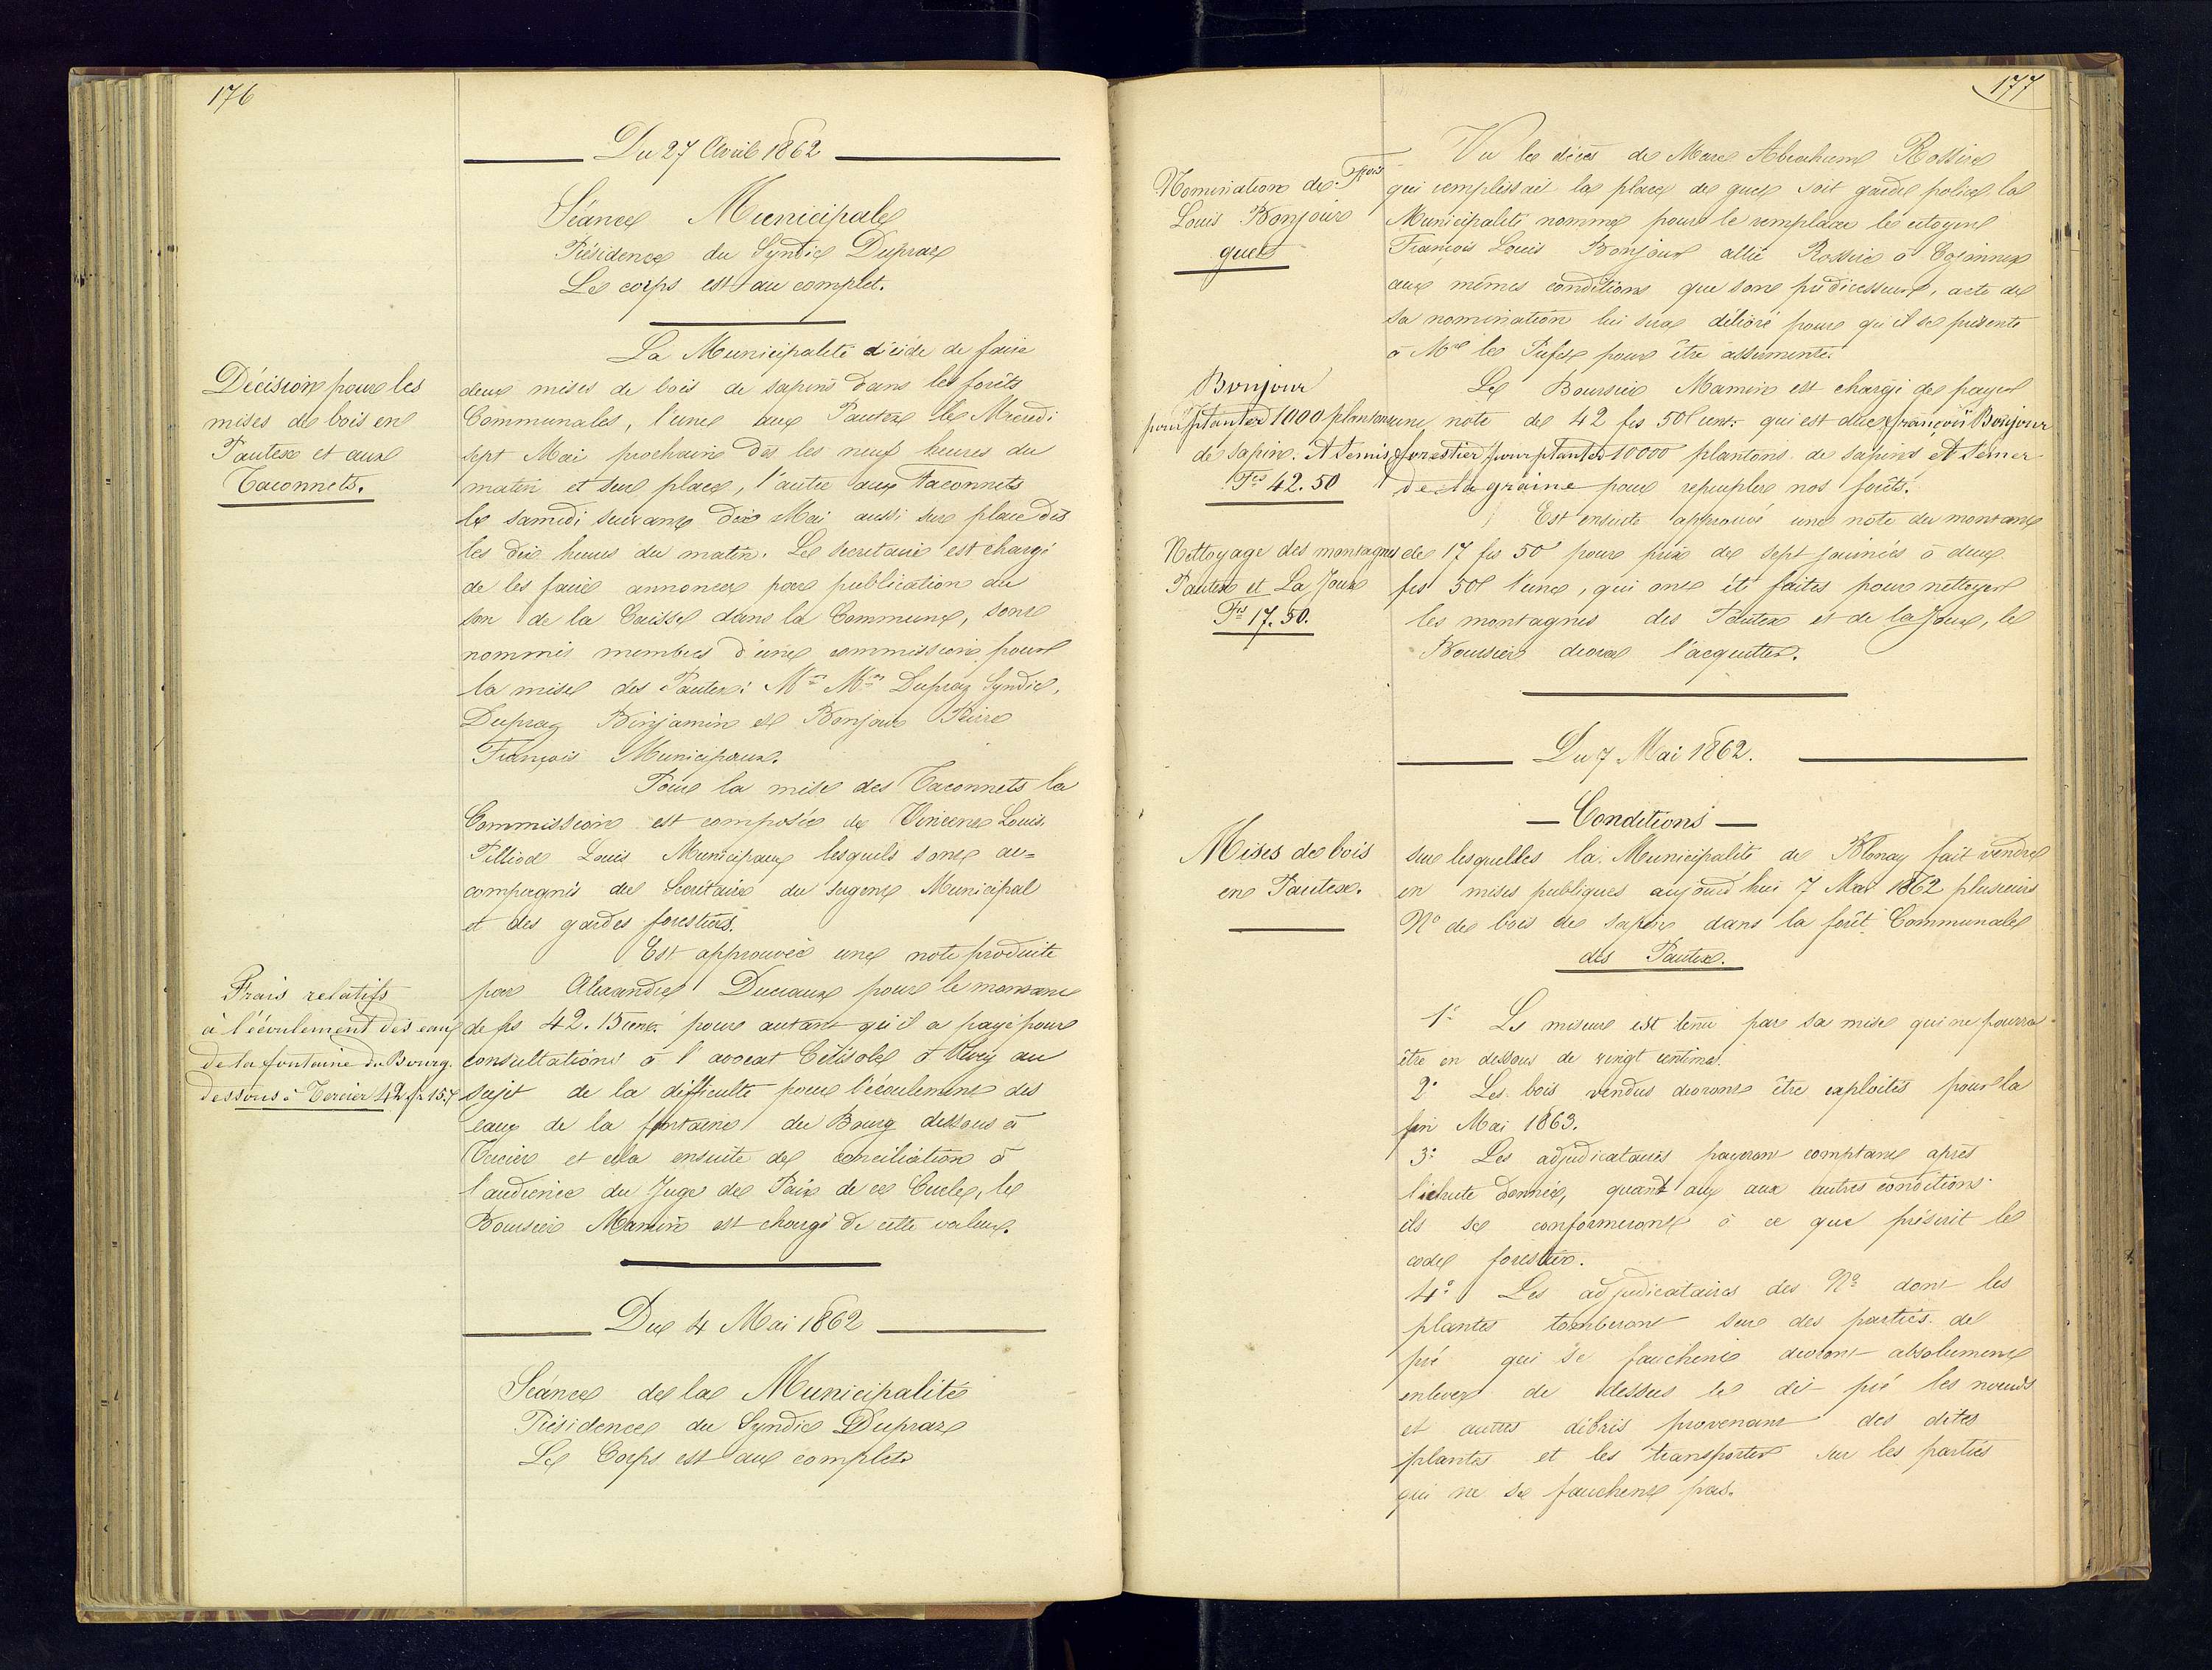 176
Du 27 Avril 1862
Séance Municipale
Présidence du Syndic Dupraz
Le corps est au complet.
La Municipalité décide de faire
Décision pour les
mises de bois en
Pautex et aux
Taconnets.
deux mises de bois de sapins dans les forêts
Communales, l'une aux Pautex le Mercredi
sept Mai prochain dès les neuf heures du
matin et sur place, l'autre aux Taconnets
le samedi suivant dix Mai aussi sur place dès
les dix heures du matin. Le secretaire est chargé
de les faire annoncer par publication au
son de la Caisse dans la Commune, sont
nommés membres d'une commission pour
la mise des Pautex: Mrs Mrs Dupraz Syndic,
Dupraz Binjamin et Bonjour Pierre
François Municipaux.
Pour la mise des Taconnets la
Commission est composée de Vincent Louis
Pilliod Louis Municipaux lesquels sont ac=
compagnés du Secrétaire du sergent Municipal
et des gardes forestiers.
Est approuvée une note produite
Frais relatifs
à l'écoulement des eaux
de la fontaine du Bourg.
dessous à Tercier 42 fr 15.
par Alexandre Ducraux pour le montant
de fs 42. 15 cent. pour autant qu'il a payé pour
consultations à l'avocat Cérésole à Vevey au
sujet de la difficulté pour l'écoulement des
eaux de la fontaine du Bourg dessous à
Tercier et cela ensuite de conciliation à
l'audience du Juge de Paix de ce Cercle, le
Boursier Mamin est chargé de cette valeur.
Du 4 Mai 1862
Séance de la Municipalité
Présidence du Syndic Dupraz
Le Corps est au complet
177
Vu le décès de Marc Abraham Rossier
Nomination de Frois
Louis Bonjour
guet
qui remplissait la place de guet soit garde police la
Municipalité nomme pour le remplacer le citoyen
François Louis Bonjour allié Rossier à Cojonnex
aux mêmes conditions que son prédécesseur, acte de
sa nomination lui sera délivré pour qu'il se présente
à Mr le Préfet pour être assermenté.
Bonjour
pour planter 1000 plantons
de sapin. A Semis
Frs 42.50
Le Boursier Mamin est chargé de payer
une note de 42 fcs 50 cent. qui est due françois Bonjour
forestier pour planter 10000 plantons de sapins et semer
de la graine pour repeupler nos forêts.
Est ensuite approuvée une note du montant
Nettoyage des montagnes
Pautex et La Joux
Frs 17.50.
de 17 fcs 50 pour prix de sept journées à deux
fcs 50 l'une, qui ont été faites pour nettoyer
les montagnes des Pautex et de la Joux, le
Boursier devra l'acquitter.
Du 7 Mai 1862.
Conditions
Mises de bois
en Pautex.
sur lesquelles la Municipalité de Blonay fait vendre
en mises publiques aujourd'hui 7 Mai 1862 plusieurs
No de bois de sapin dans la forêt Communale
des Pautex.
1o Le miseur est tenu par sa mise qui ne pourra
être en dessous de vingt centimes.
2o Les bois vendus devront être exploités pour la
fin Mai 1863.
3o Les adjudicataires payeront comptant après
l'échute donnée, quant aux aux autres conditions
ils se conformeront à ce que préscrit le
code forestier.
4o Les adjudicataires des No dont les
plantes tomberont sur des parties de
pré qui se fauchent devront absolument
enlever de dessus le dit pré les nœuds
et autres débris provenant des dites
plantes et les transporter sur les parties
qui ne se fauchent pas.